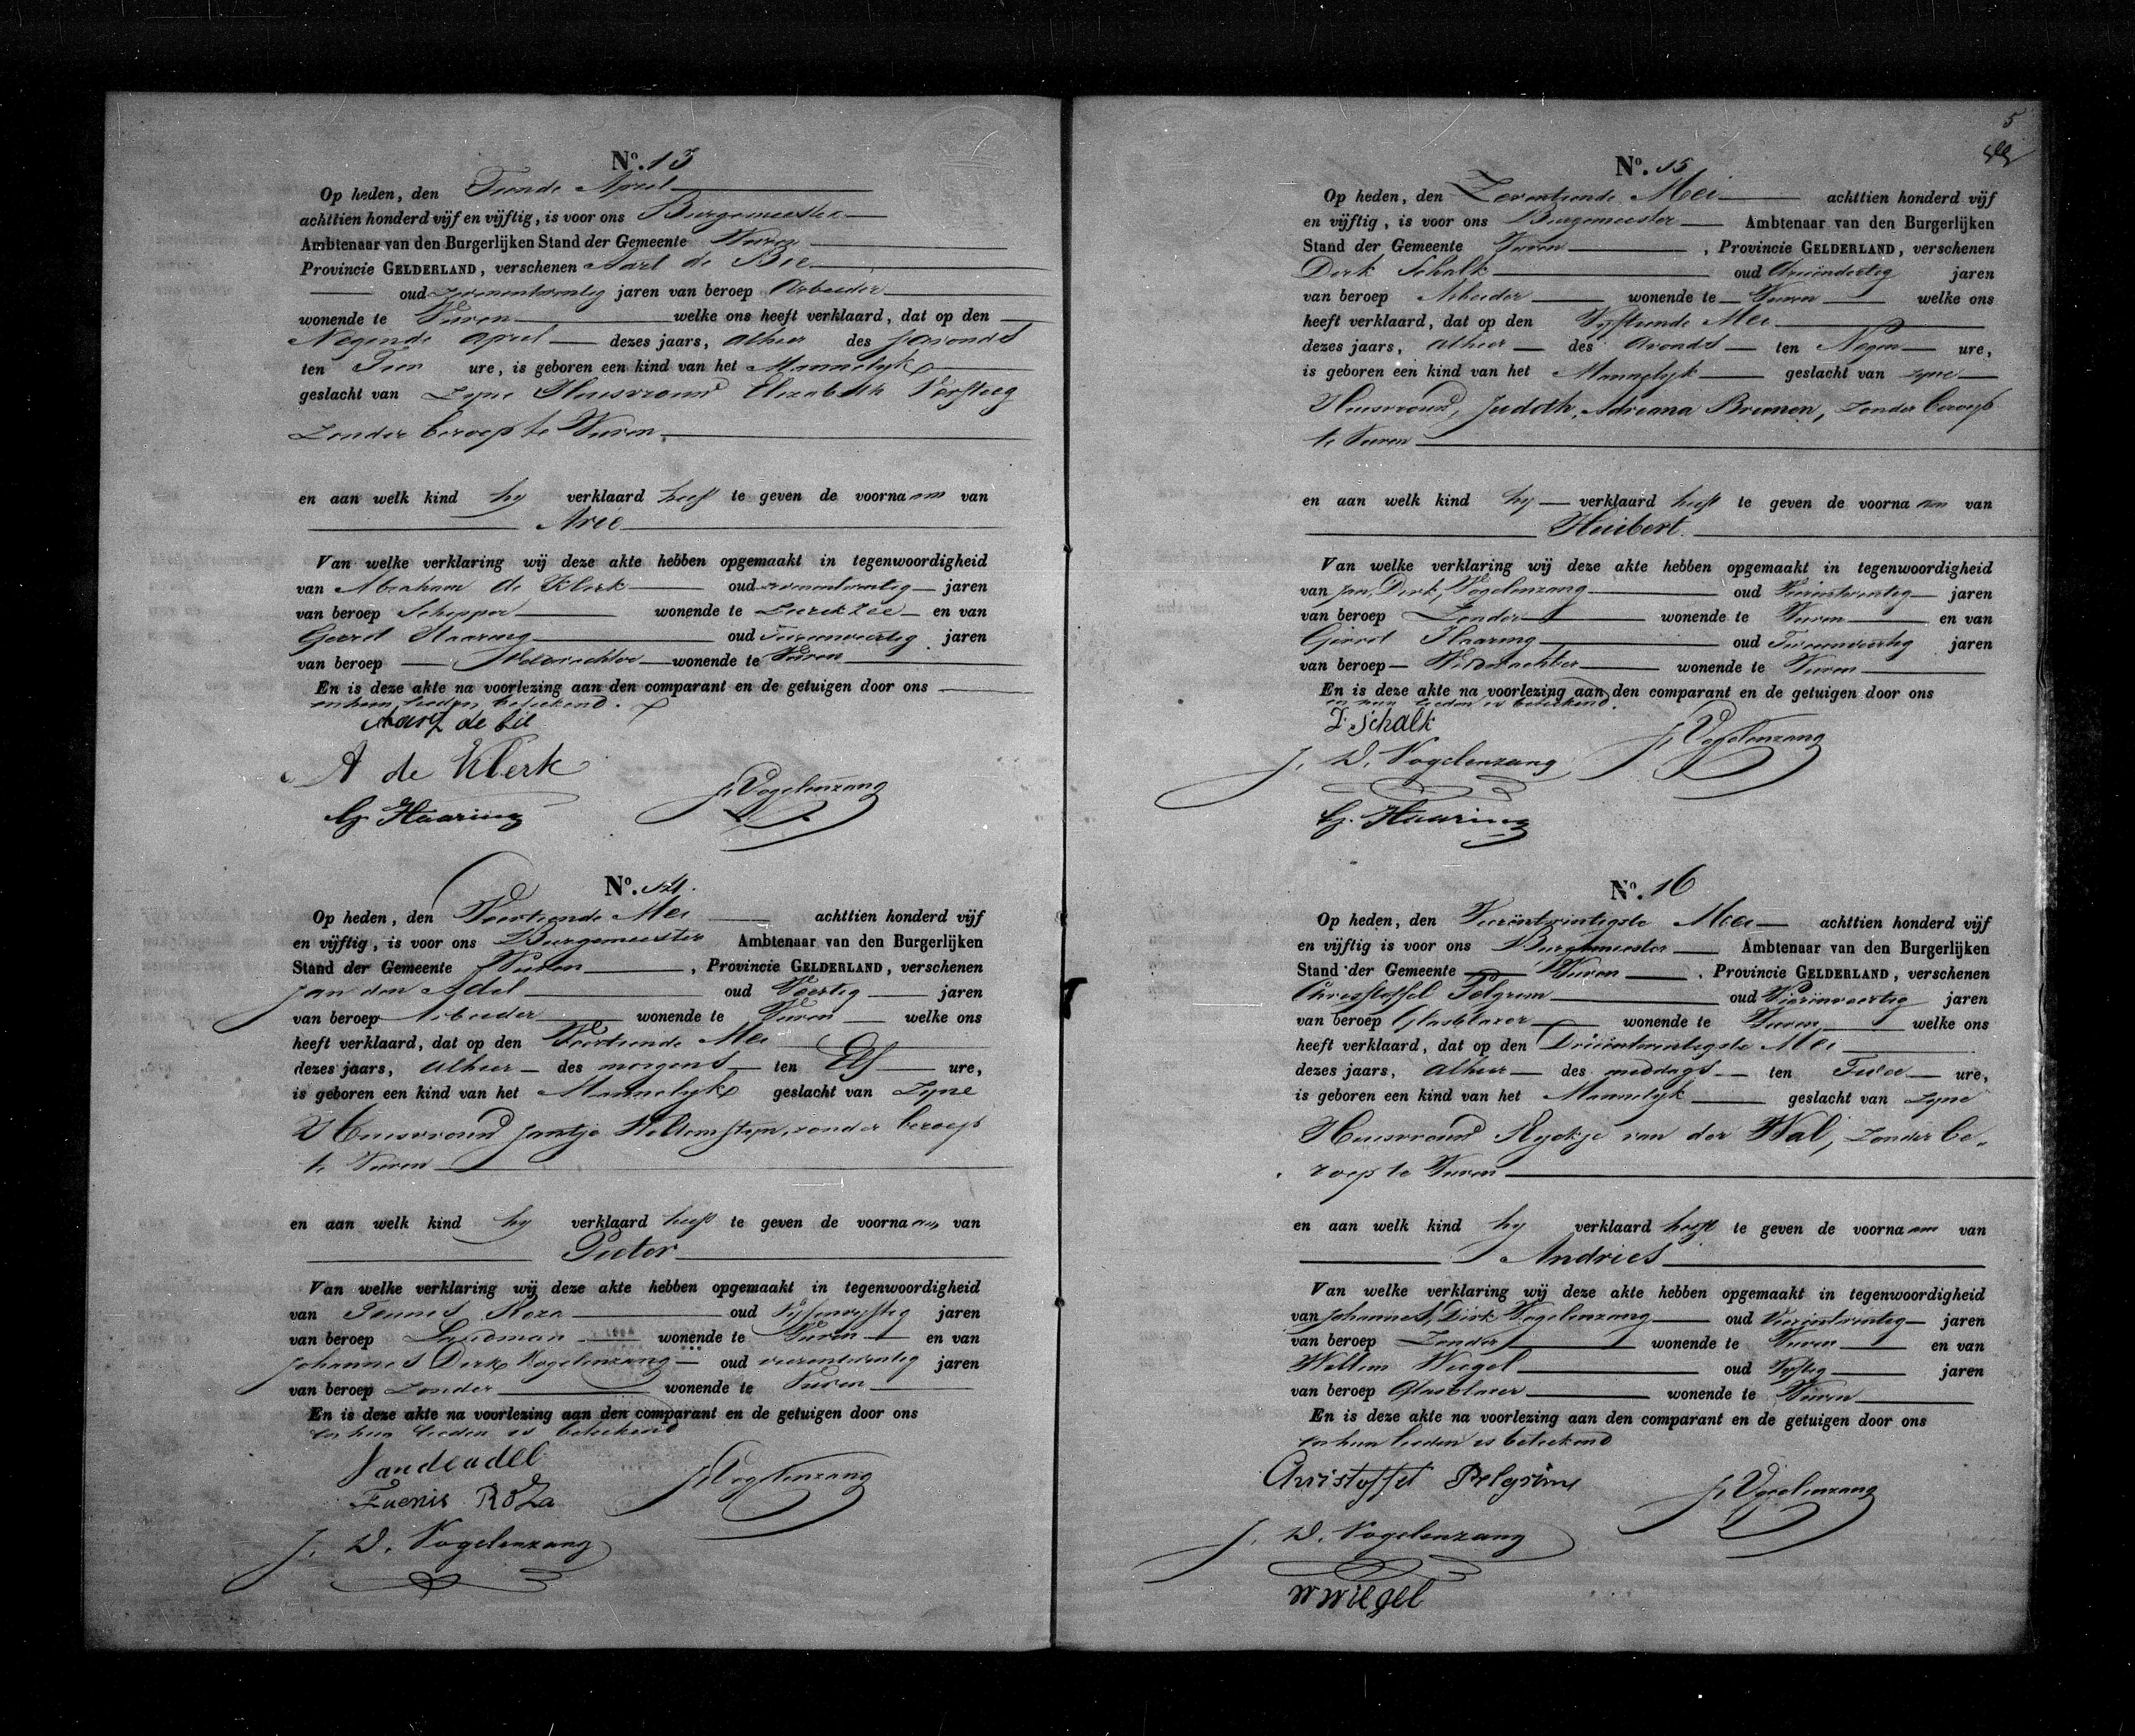 No. 13
Op heden, den Tiende April
achttien honderd vijf en vijftig, is voor ons Burgemeester
Ambtenaar van den Burgerlijken Stand der Gemeente Vuren
Provincie GELDERLAND, verschenen Aart de Bie
oud zevenentwintig jaren van beroep Arbeider
wonende te Vuren welke ons heeft verklaard, dat op den
Negende April dezes jaars, alhier des savonds
ten Tien ure, is geboren een kind van het Mannelijk
geslacht van Zijne Huisvrouw Elizabeth Versteeg
Zonder beroep te Vuren
en aan welk kind hij verklaard heeft te geven de voornaam van
Arie
Van welke verklaring wij deze akte hebben opgemaakt in tegenwoordigheid
van Abraham de Klerk oud zevenentwintig jaren
van beroep Schipper wonende te Zierikzee en van
Gerrit Haaring oud Tweenveertig jaren
van beroep Veldwachter wonende te Vuren
En is deze akte na voorlezing aan den comparant en de getuigen door ons
en hun lieden beteekend.
Aart de bie
A de Klerk
G. Haaring
J. Vogelenzang
No. 14.
Op heden, den Veertiende Mei achttien honderd vijf
en vijftig, is voor ons Burgemeester Ambtenaar van den Burgerlijken
Stand der Gemeente Vuren, Provincie GELDERLAND, verschenen
Jan den Adel oud Veertig jaren
van beroep Arbeider wonende te Vuren welke ons
heeft verklaard, dat op den Veertiende Mei
dezes jaars, alhier des morgens ten Elf ure,
is geboren een kind van het Mannelijk geslacht van Zijne
Huisvrouw Jantje zonder beroep
te Vuren
en aan welk kind hij verklaard heeft te geven de voornaam van
Pieter
Van welke verklaring wij deze akte hebben opgemaakt in tegenwoordigheid
van Teunis Roza oud Vijfenvijftig jaren
van beroep Landman wonende te Vuren en van
Johannes Dirk Vogelenzang oud vierentwintig jaren
van beroep Zonder wonende te Vuren
En is deze akte na voorlezing aan den comparant en de getuigen door ons
en hun lieden is beteekend
Jan den adel
Tuenis Roza
J. Vogelenzang
J. D. Vogelenzang
5
No. 15
Op heden, den Zeventiende Mei achttien honderd vijf
en vijftig, is voor ons Burgemeester Ambtenaar van den Burgerlijken
Stand der Gemeente Vuren, Provincie GELDERLAND, verschenen
Dirk Schalk oud Drieëndertig jaren
van beroep Arbeider wonende te Vuren welke ons
heeft verklaard, dat op den Vijftiende Mei
dezes jaars, alhier des avonds ten Negen ure,
is geboren een kind van het Mannelijk geslacht van zijne
Huisvrouw, Judith, Adriana Bremen, Zonder beroep
te Vuren
en aan welk kind hij verklaard heeft te geven de voornaam van
Huibert.
Van welke verklaring wij deze akte hebben opgemaakt in tegenwoordigheid
van Jan, Dirk, Vogelenzang oud Vierentwintig jaren
van beroep Zonder wonende te Vuren en van
Gerrit Haaring oud Tweenveertig jaren
van beroep Veldwachter wonende te Vuren
En is deze akte na voorlezing aan den comparant en de getuigen door ons
en hun lieden is beteekend.
D. Schalk
J. Vogelenzang
J. D. Vogelenzang
G. Haaring
No. 16
Op heden, den Vierëntwintigste Mei achttien honderd vijf
en vijftig is voor ons Burgemeester Ambtenaar van den Burgerlijken
Stand der Gemeente Vuren, Provincie GELDERLAND, verschenen
Christoffel Pelgrim oud Vierënveertig jaren
van beroep Glasblazer wonende te Vuren welke ons
heeft verklaard, dat op den Drieëntwintigste Mei
dezes jaars, alhier des middags ten Twee ure,
is geboren een kind van het Mannelijk geslacht van Zijne
Huisvrouw Rijckje van der Wal, Zonder be-
roep te Vuren
en aan welk kind hij verklaard heeft te geven de voornaam van
Andries
Van welke verklaring wij deze akte hebben opgemaakt in tegenwoordigheid
van Johannes, Dirk Vogelenzang oud Vierentwintig jaren
van beroep Zonder wonende te Vuren en van
Willem Wiegel oud Vijftig jaren
van beroep Glasblazer wonende te Vuren
En is deze akte na voorlezing aan den comparant en de getuigen door ons
en hun lieden is beteekend
Christoffel Pelgrim
J. Vogelenzang
J. D. Vogelenzang
W Wiegel